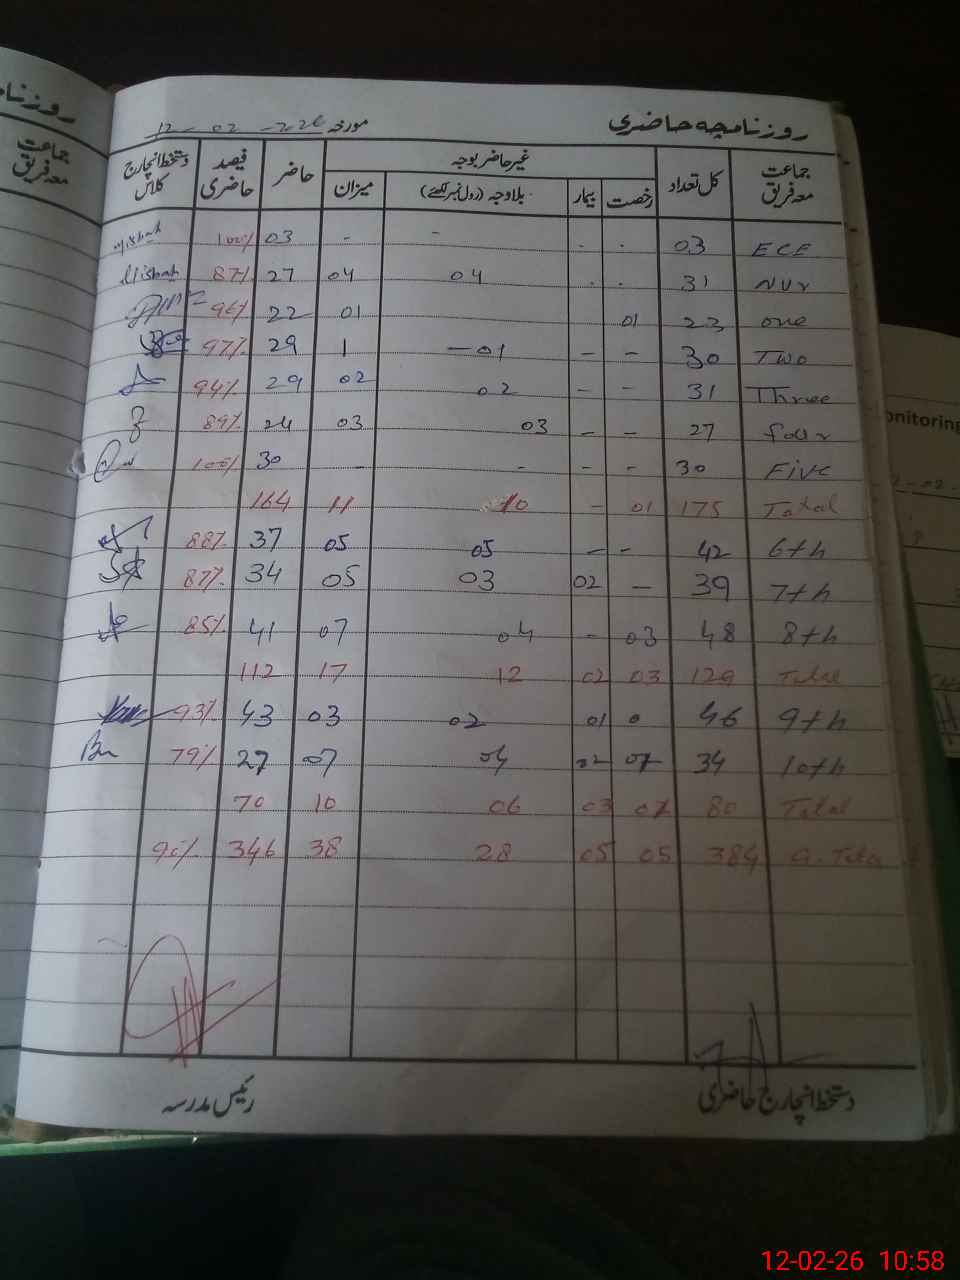 روزنامچہ حاضری مورخہ 12-02-226
جماعت معہ فریق کل تعداد غیر حاضر بوجہ حاضر فیصد حاضری دستخط انچارج کلاس
رخصت بیمار بلاوجہ (رول نمبر لکھئے) میزان
ECE 03 . . - - 03 100% Misbah
Nur 31 . . 04 04 27 87% Misbah
one 23 01 01 22 96%
Two 30 - - 01 1 29 97%
Three 31 - - 02 02 29 94%
four 27 - - 03 03 24 89%
Five 30 - - - - 30 100%
Total 175 01 - 10 11 164
6th 42 - - 05 05 37 88%
7th 39 - 02 03 05 34 87%
8th 48 03 - 04 07 41 85%
Total 129 03 02 12 17 112
9th 46 0 01 02 03 43 93%
10th 34 02 04 07 27 79%
Total 80 03 06 10 70
G. Total 384 05 05 28 38 346 90%
دستخط انچارج حاضری رئیس مدرسہ
روزنامچہ
جماعت معہ فریق
onitoring
12-02-26 10:58